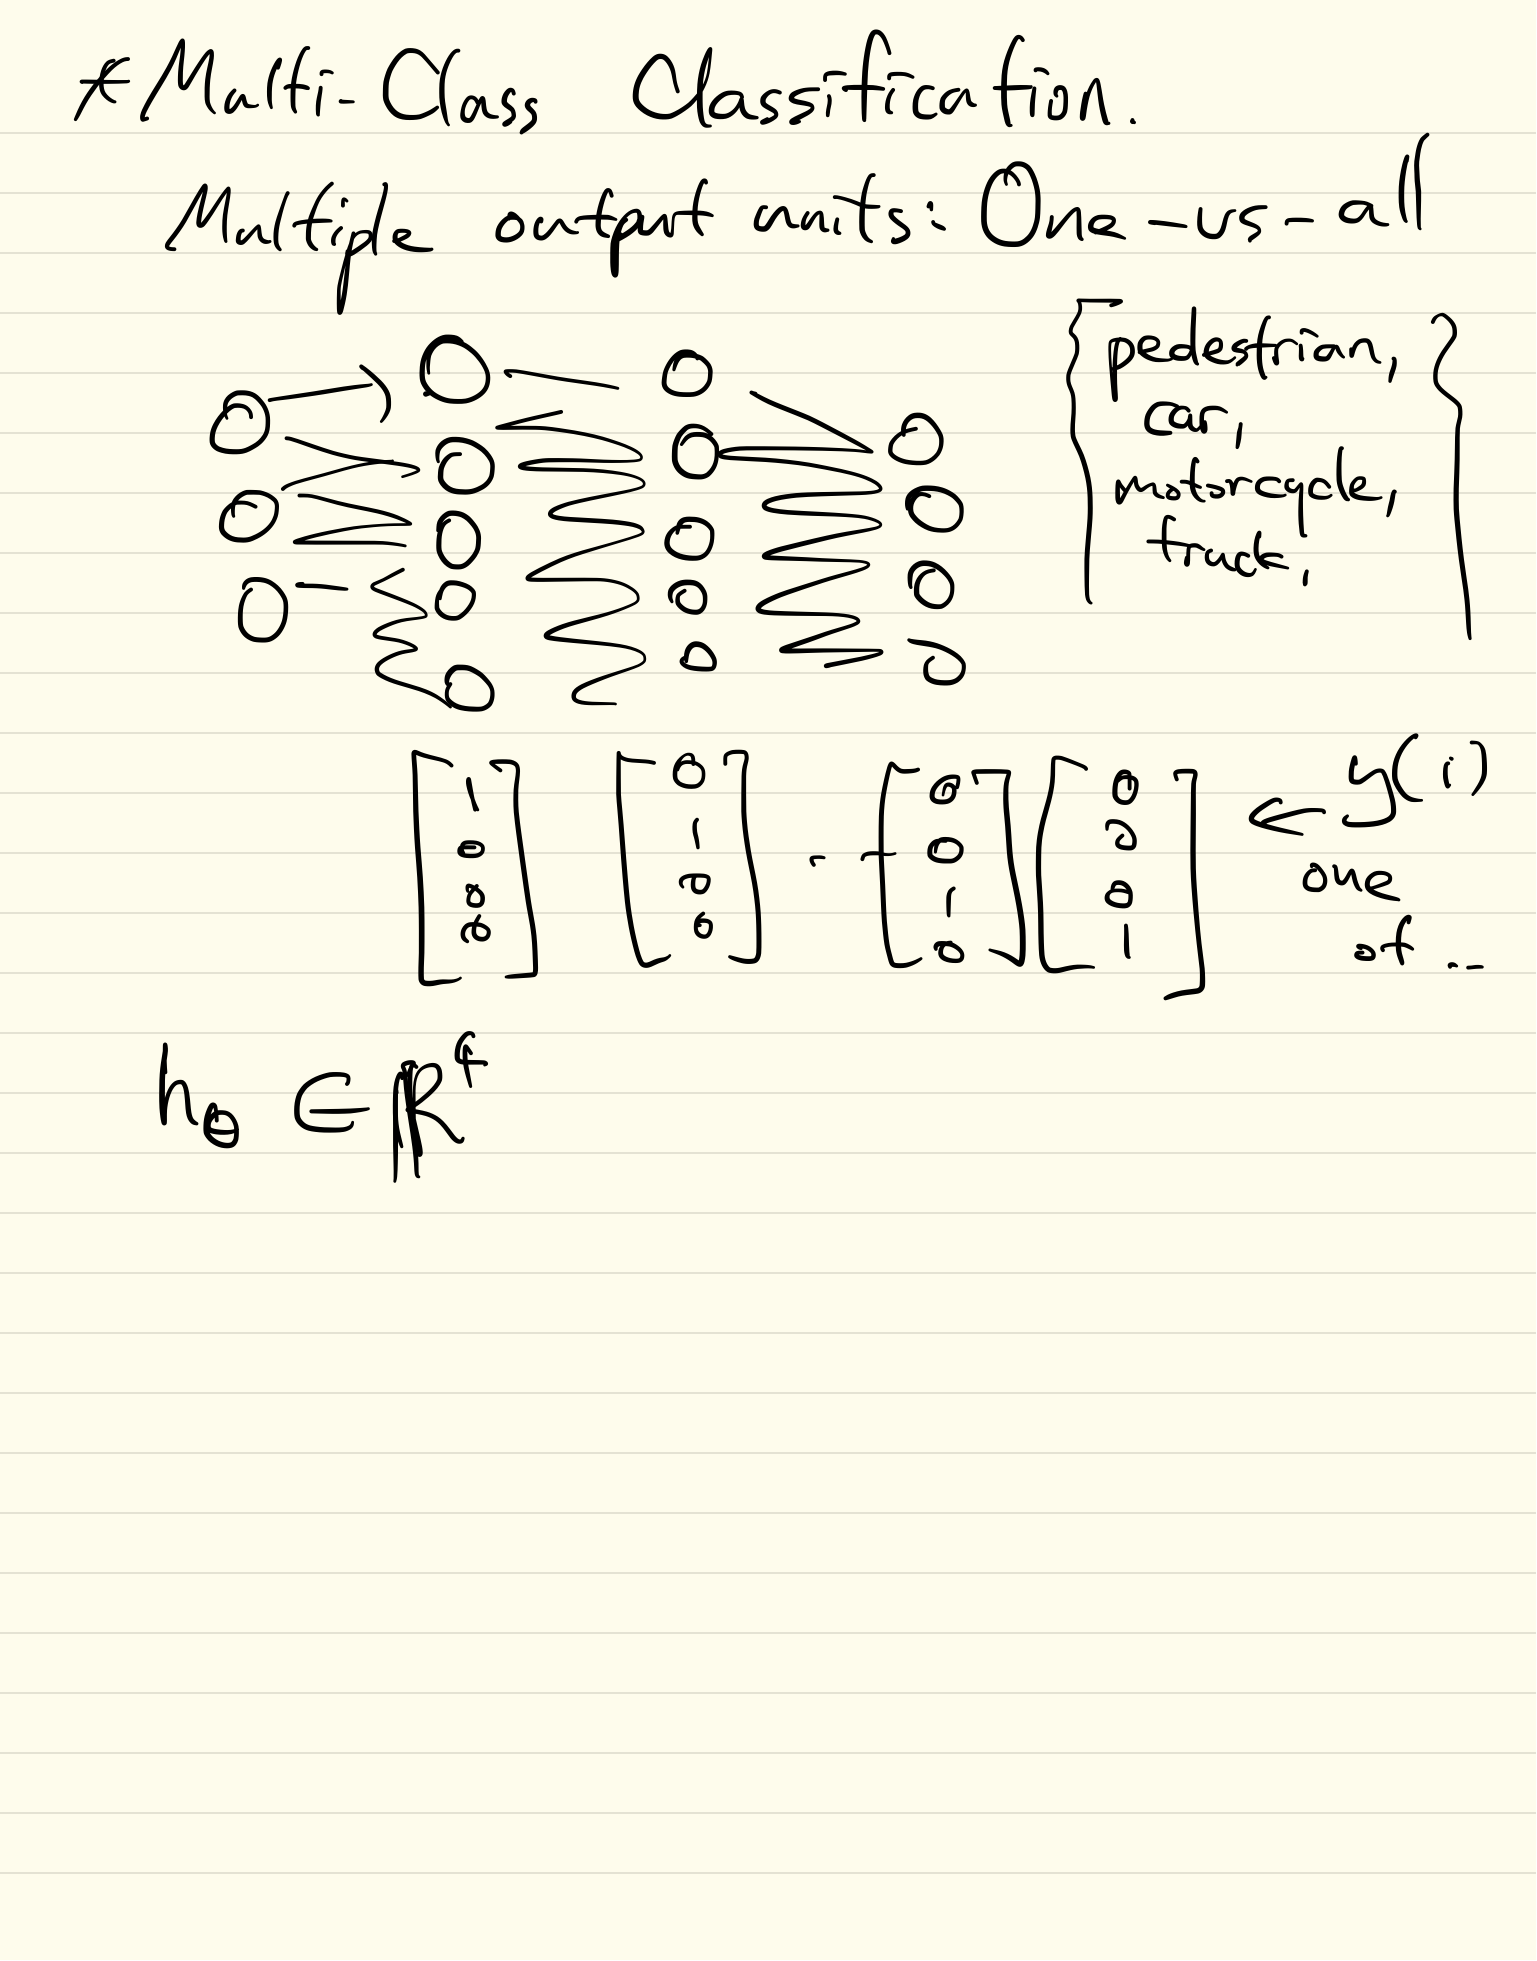 * Multi-Class Classification.
Multiple output units: One-vs-all
{ pedestrian,
car,
motorcycle,
truck, }
[1 0 0 0] [0 1 0 0] -- [0 0 1 0] [0 0 0 1] ← y(i)
one
of ...
hθ ∈ ℝ⁴